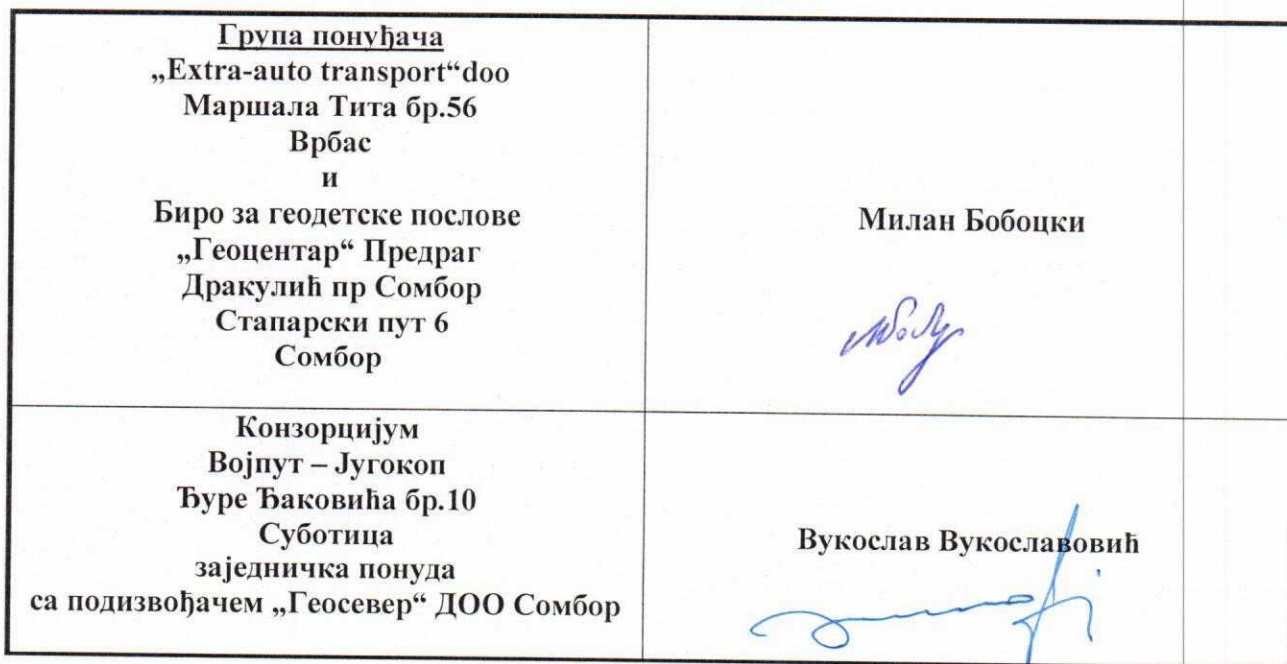 Група понуђача
„Extra-auto transport“doo
Маршала Тита бр.56
Врбас
и
Биро за геодетске послове
„Геоцентар“ Предраг
Дракулић пр Сомбор
Стапарски пут 6
Сомбор
Милан Бобоцки
Конзорцијум
Војпут – Југокоп
Ђуре Ђаковића бр.10
Суботица
заједничка понуда
са подизвођачем „Геосевер“ ДОО Сомбор
Вукослав Вукославовић